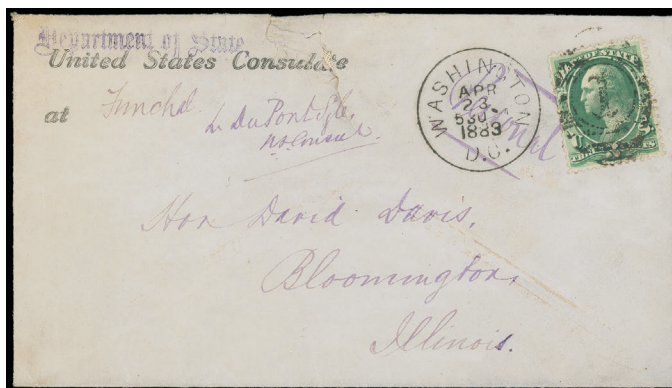 Department of State
United States Consulate
at Funchal
L. Du Pont Syle,
U.S. Consul.
WASHINGTON
APR
23
530
1883
D.C.
Hon David Davis,
Bloomington,
Illinois.